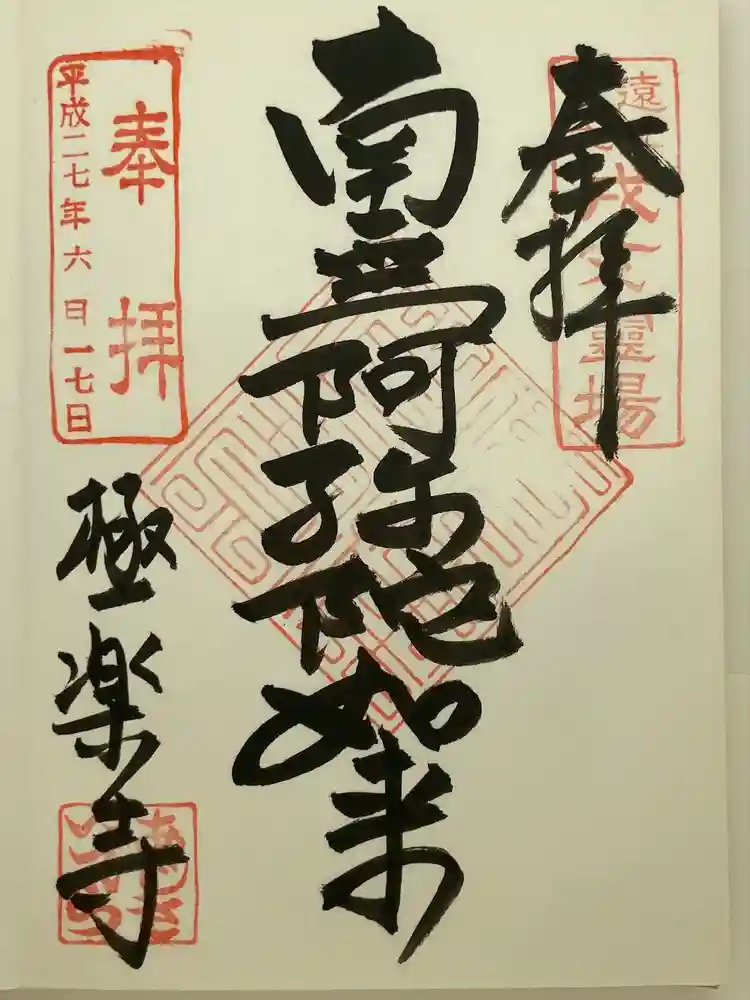 奉拝
遠
霊場
南無阿弥陀如来
奉拝
平成二七年六月一七日
極楽寺